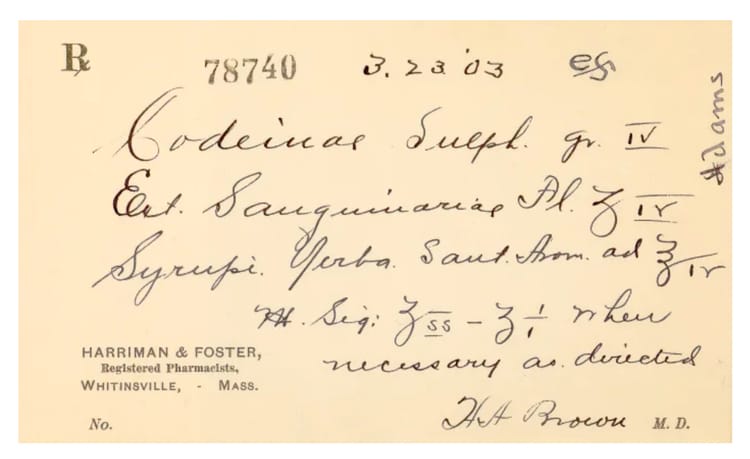 ℞ 78740 3.23'03
Adams
Codeinae Sulph. gr. IV
Ext. Sanguinariae Fl. ʒ IV
Syrupi. Yerba. Sant. Arom. ad ℥ IV
M. Sig: ʒ ss - ʒ i when
necessary as directed
HARRIMAN & FOSTER,
Registered Pharmacists,
WHITINSVILLE, - MASS.
No. HA Brown M. D.